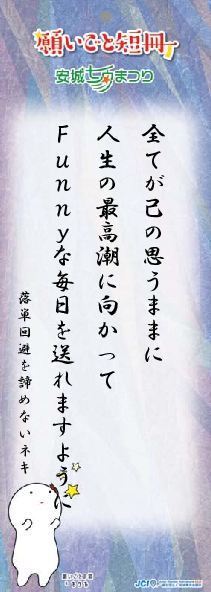 願いごと短冊
安城七夕まつり
全てが己の思うままに
人生の最高潮に向かって
Funnyな毎日を送れますように
落単回避を諦めないネキ
JCI